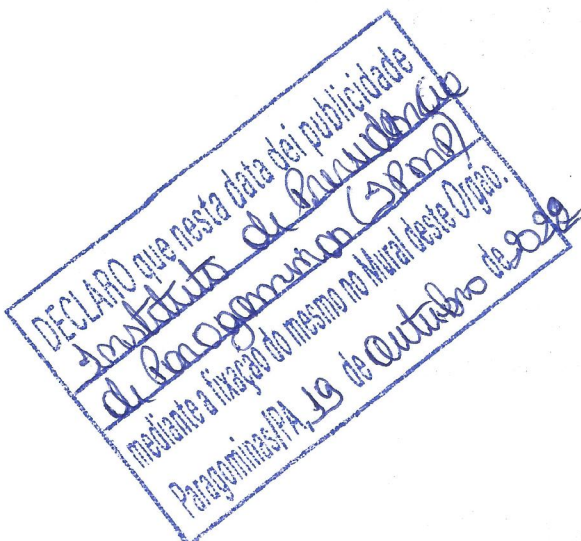 DECLARO que nesta data dei publicidade
Instituto de Previdência
de Paragominas (IPMP)
mediante a fixação do mesmo no Mural deste Orgão.
Paragominas/PA, 19 de Outubro de 2022